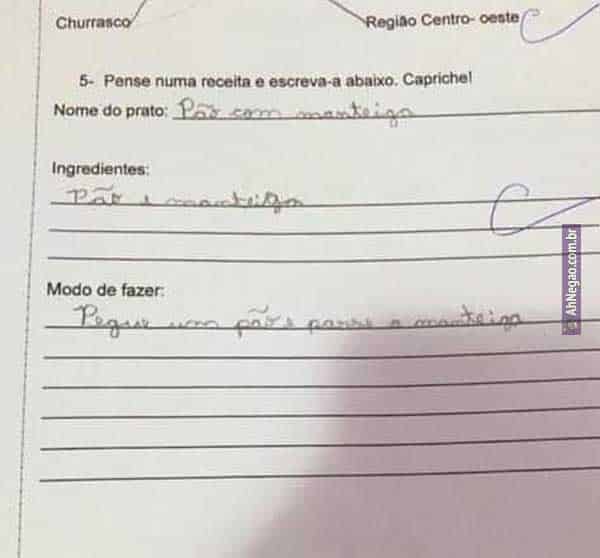 Churrasco
Região Centro- oeste
5- Pense numa receita e escreva-a abaixo. Capriche!
Nome do prato: Pão com manteiga
Ingredientes:
Pão e manteiga
Modo de fazer:
Pegue um pão e passe a manteiga
© AhNegao.com.br